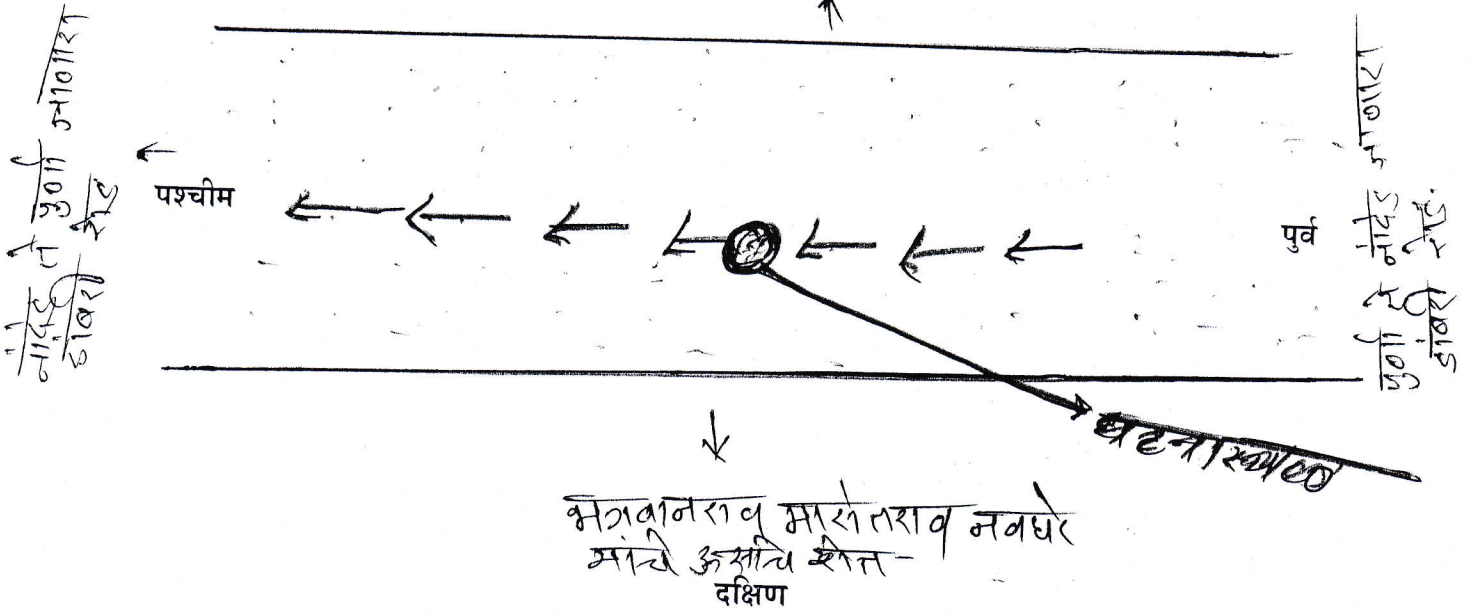 नांदेड ते पुर्णा जाणारा
डांबरी रोड
पश्चीम
पुर्व
पुर्णा ते नांदेड जाणारा
डांबरी रोड.
घटनास्थळ
भगवानराव मारोतराव नवघरे
यांचे ऊसाचे शेत -
दक्षिण